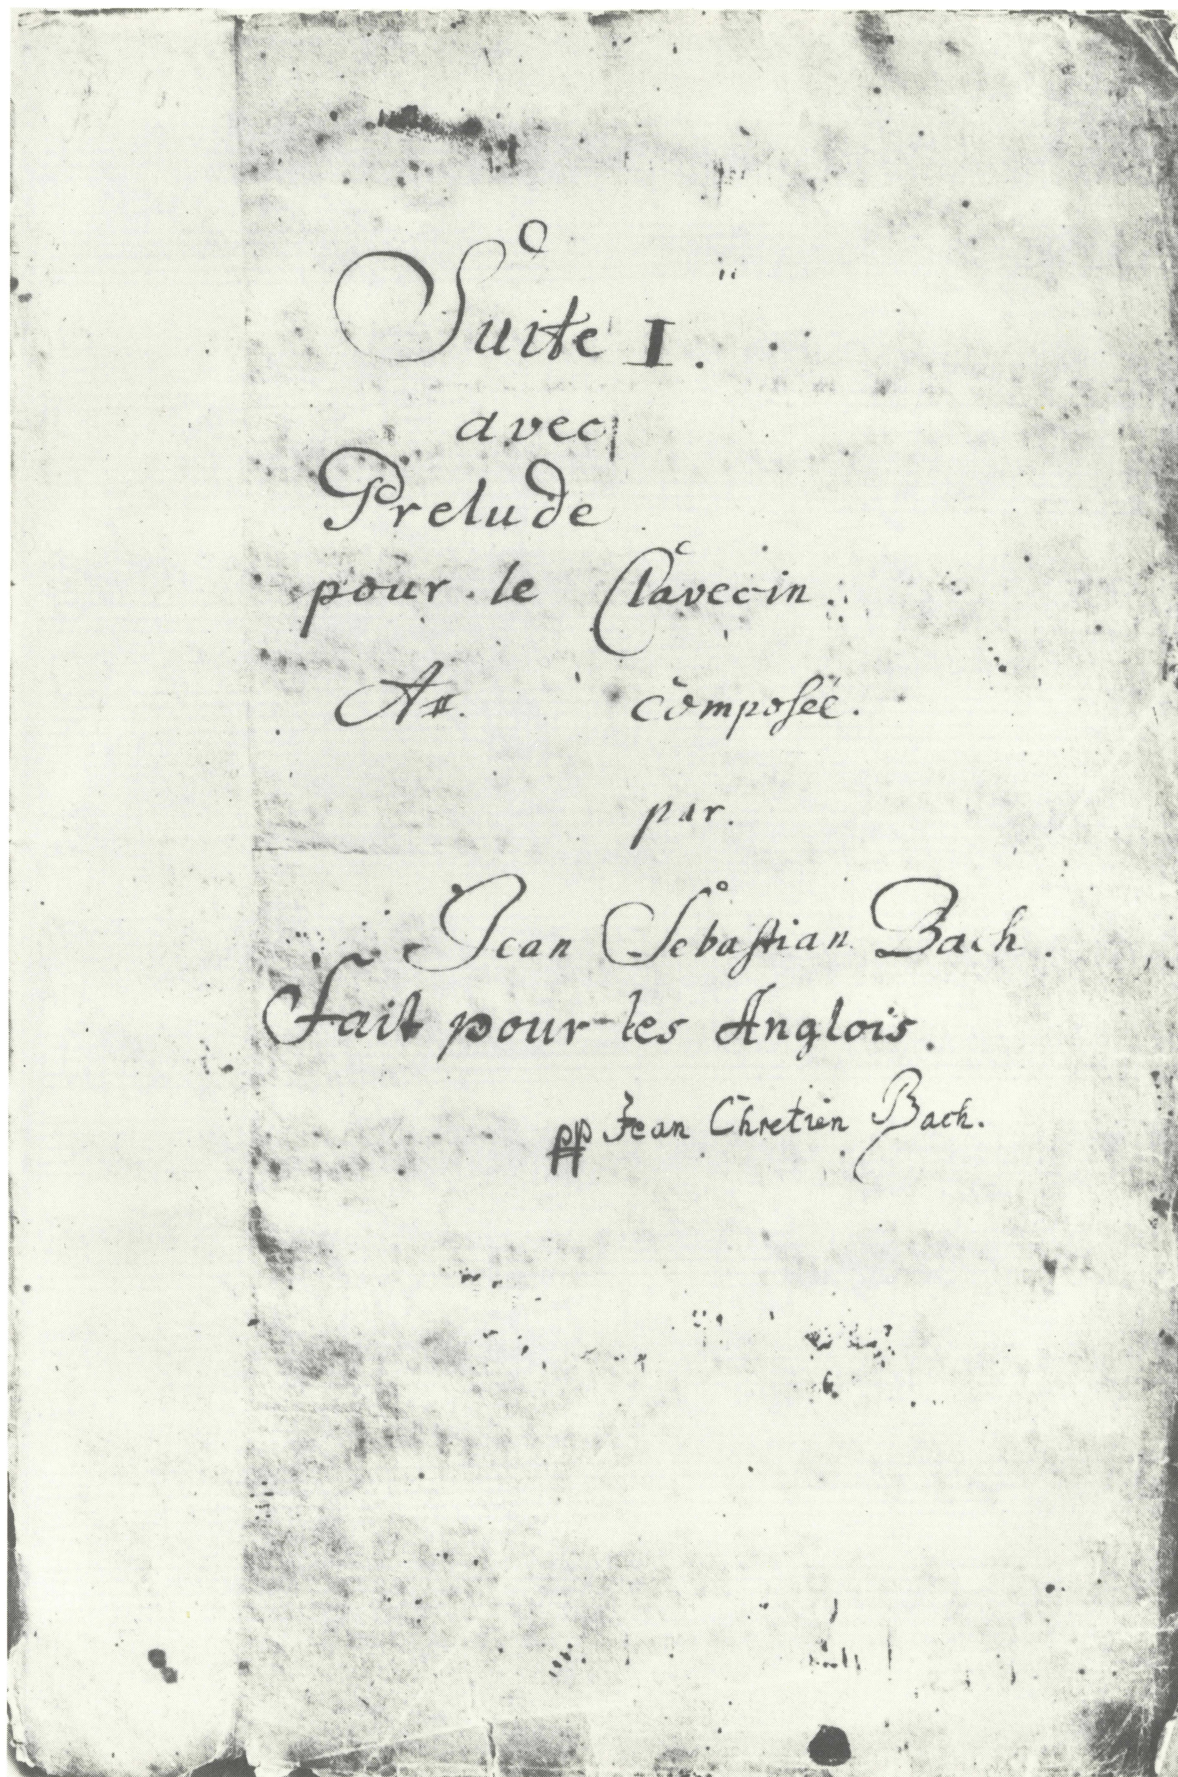 Suite I.
avec
Prelude
pour le Clavecin.
A#. composée.
par.
Jean Sebastian Bach.
Fait pour les Anglois.
pp Jean Chretien Bach.